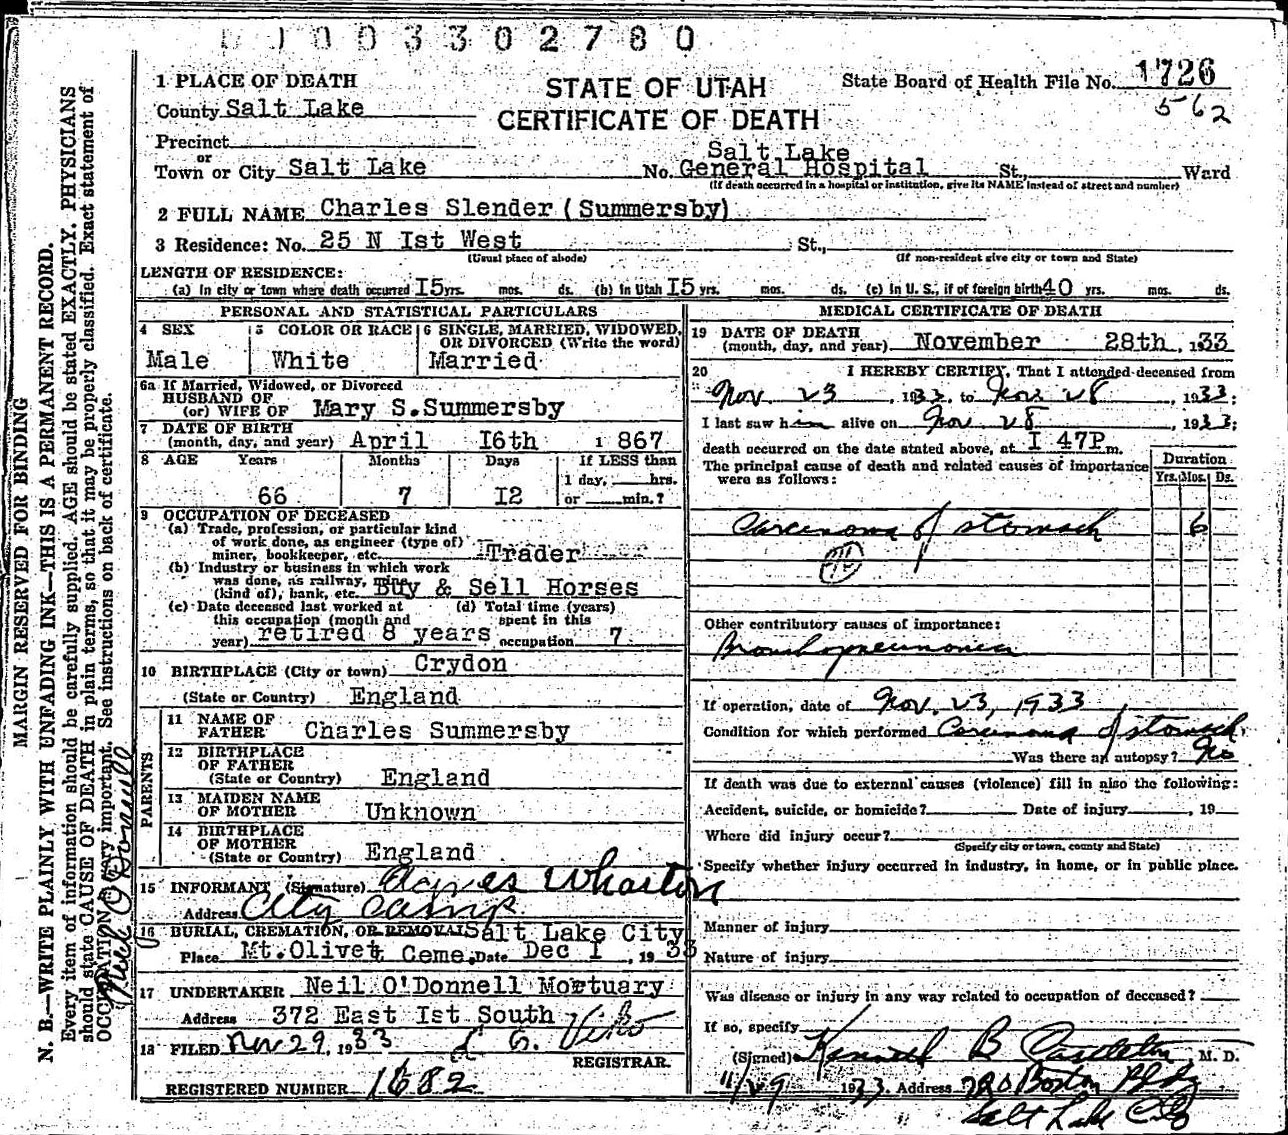 0 0 3 3 0 2 7 8 0
1 PLACE OF DEATH
STATE OF UTAH
CERTIFICATE OF DEATH
State Board of Health File No. 1726
562
County Salt Lake
Precinct
or
Town or City Salt Lake No. Salt Lake General Hospital St., Ward
(If death occurred in a hospital or institution, give its NAME instead of street and number)
2 FULL NAME Charles Slender (Summersby)
3 Residence: No. 25 N Ist West St.,
(Usual place of abode) (If non-resident give city or town and State)
LENGTH OF RESIDENCE:
(a) In city or town where death occurred I5 yrs. mos. ds. (b) In Utah I5 yrs. mos. ds. (c) In U. S., if of foreign birth 40 yrs. mos. ds.
PERSONAL AND STATISTICAL PARTICULARS
4 SEX Male
5 COLOR OR RACE White
6 SINGLE, MARRIED, WIDOWED, OR DIVORCED (Write the word) Married
6a If Married, Widowed, or Divorced
HUSBAND OF
(or) WIFE OF Mary S. Summersby
7 DATE OF BIRTH
(month, day, and year) April I6th 1 867
8 AGE Years Months Days If LESS than
1 day, hrs.
66 7 I2 or min.?
9 OCCUPATION OF DECEASED
(a) Trade, profession, or particular kind
of work done, as engineer (type of)
miner, bookkeeper, etc. Trader
(b) Industry or business in which work
was done, as railway, mine
(kind of), bank, etc. Buy & Sell Horses
(c) Date deceased last worked at
this occupation (month and
year) retired 8 years
(d) Total time (years)
spent in this
occupation 7
10 BIRTHPLACE (City or town) Crydon
(State or Country) England
PARENTS
11 NAME OF
FATHER Charles Summersby
12 BIRTHPLACE
OF FATHER
(State or Country) England
13 MAIDEN NAME
OF MOTHER Unknown
14 BIRTHPLACE
OF MOTHER
(State or Country) England
15 INFORMANT (Signature) Agnes Wharton
Address City Camp
16 BURIAL, CREMATION, OR REMOVAL Salt Lake City
Place Mt. Olivet Ceme. Date Dec I, 19 33
17 UNDERTAKER Neil O'Donnell Mortuary
Address 372 East Ist South
18 FILED Nov 29, 1933
REGISTRAR.
REGISTERED NUMBER 1682
MEDICAL CERTIFICATE OF DEATH
19 DATE OF DEATH
(month, day, and year) November 28th, 1933
20 I HEREBY CERTIFY, That I attended deceased from
Nov. 23, 1933, to Nov 28, 1933;
I last saw him alive on Nov. 28, 1933;
death occurred on the date stated above, at I 47P m.
The principal cause of death and related causes of importance
were as follows:
Duration
Yrs. Mos. Ds.
Carcinoma of stomach 6
Other contributory causes of importance:
Bronchopneumonia
If operation, date of Nov. 23, 1933
Condition for which performed Carcinoma of stomach
Was there an autopsy? No
If death was due to external causes (violence) fill in also the following:
Accident, suicide, or homicide? Date of injury, 19
Where did injury occur?
(Specify city or town, county and State)
Specify whether injury occurred in industry, in home, or in public place.
Manner of injury
Nature of injury
Was disease or injury in any way related to occupation of deceased?
If so, specify
(Signed) Kenneth B Castleton, M. D.
11/29 1933. Address 720 Boston Bldg
Salt Lake City
MARGIN RESERVED FOR BINDING
N. B.—WRITE PLAINLY WITH UNFADING INK—THIS IS A PERMANENT RECORD.
Every item of information should be carefully supplied. AGE should be stated EXACTLY. PHYSICIANS
should state CAUSE OF DEATH in plain terms, so that it may be properly classified. Exact statement of
OCCUPATION is very important. See instructions on back of certificate.
Neil O'Donnell